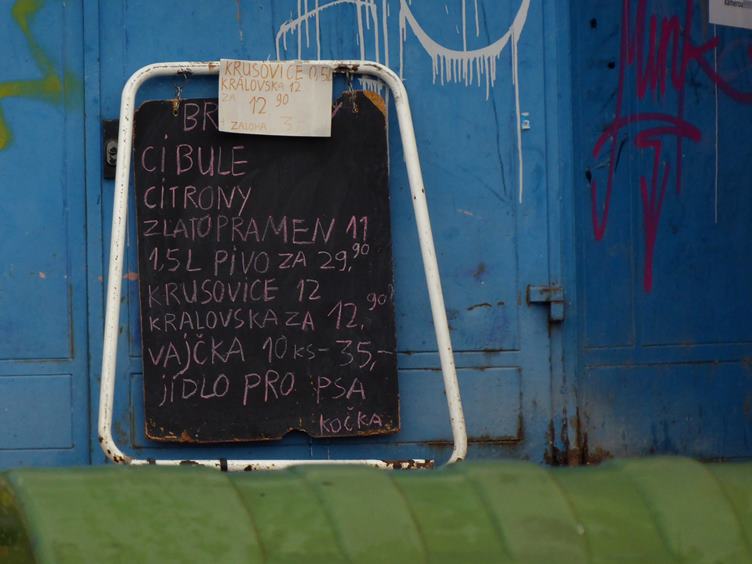 KRUSOVICE 0,5L
KRALOVSKA 12
ZA 12 90
ZALOHA 3,-
CIBULE
CITRONY
ZLATOPRAMEN 11
1,5L PIVO ZA 29,90
KRUSOVICE 12
KRALOVSKA ZA 12,90
VAJČKA 10 KS - 35,-
JÍDLO PRO PSA
KOČKA